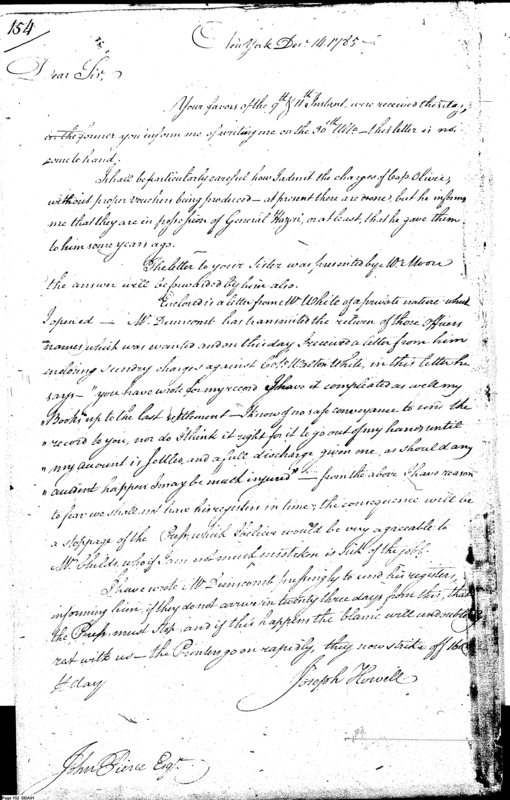 154
New York Dec. 14. 1785
Dear Sir,
Your favors of the 9th & 11th Instant, were received this day,
in the former you inform me of writing me on the 30th Ulto. - this letter is not
come to hand.
I shall be particularly careful how I admit the charges of Cap. Olivie,
without proper vouchers being produced - at present there are none, but he informs
me that they are in possession of General Hazen, or at least, that he gave them
to him some years ago.
The letter to your Sister was presented by Mr. Moore
the answer will be forwarded by him also.
Enclosed is a letter from Mr White of a private nature which
I opened - Mr. Dunscomb has transmitted the return of those officers
names which was wanted and on this day I received a letter from him
enclosing sundry charges against Colo. Walton White, in this letter he
says - "you have wrote for my record I have it compleated as well my
"Books up to the last settlement - I know of no safe conveyance to send the
"record to you, nor do I think it right for it to go out of my hands until
"my amount is settled and a full discharge given me, as should any
"accident happen I may be much injured" - from the above I have reason
to fear we shall not have his registers in time, the consequence will be
a stoppage of the Press, which I believe would be very agreeable to
Mr. Childs, who if I am not much mistaken is sick of the job.
I have wrote Mr Dunscomb pressingly to send his registers,
informing him, if they do not arrive in twenty three days from this, that
the Press must stop and if this happens the blame will undoubtedly
rest with us - the Printers go on rapidly, they now strike off
day
Joseph Howell
John Pierce Esqr.
Page 152